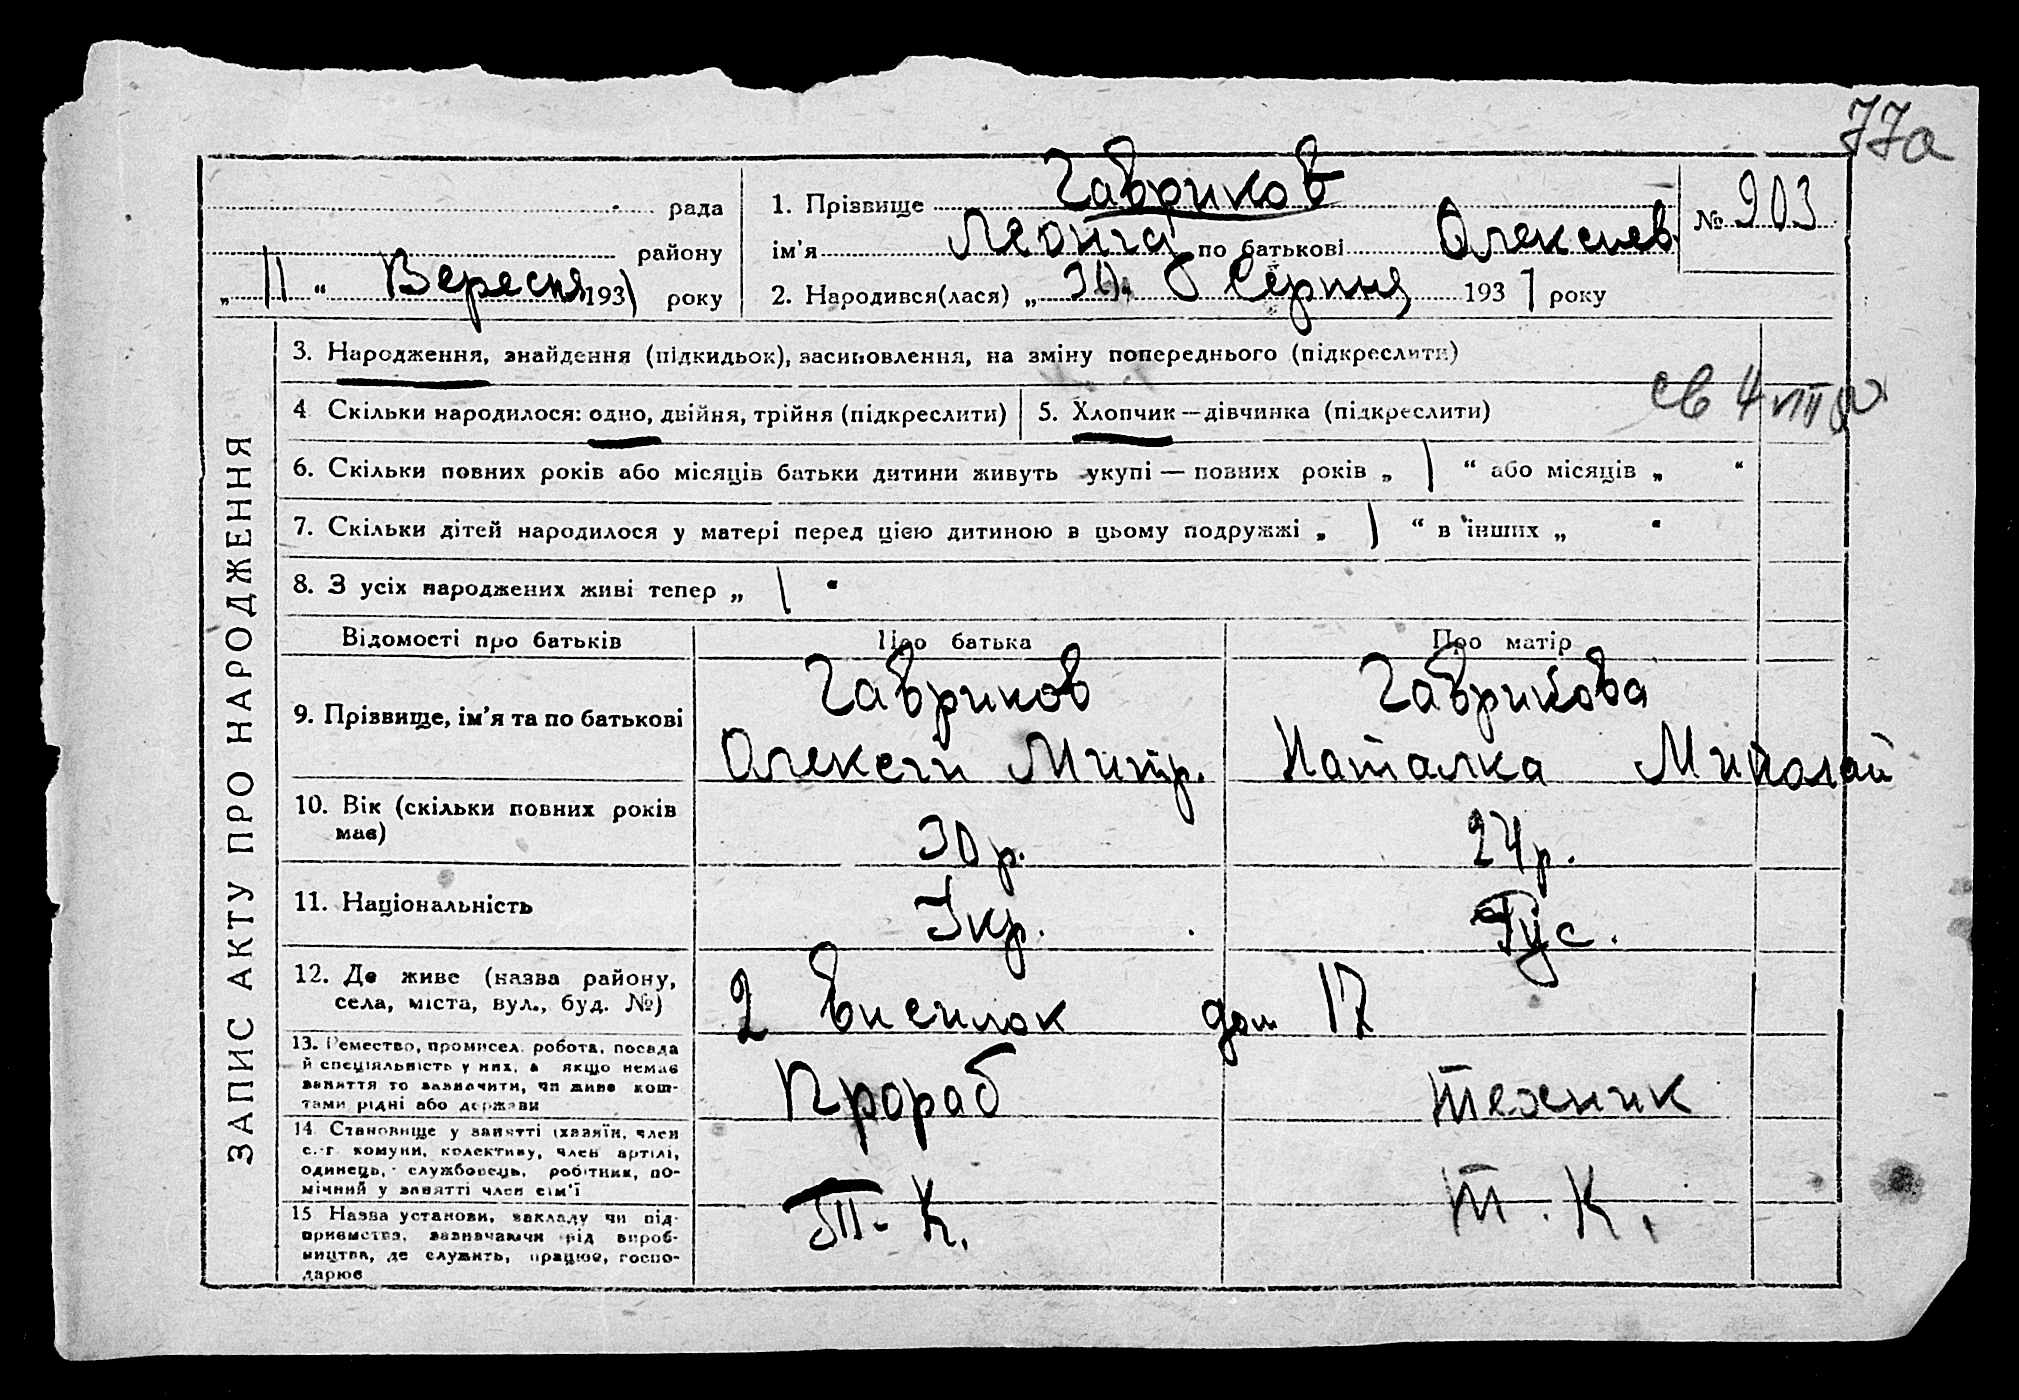 77а
рада
1. Прізвище Гавриков
№ 903
району
ім'я по батькові Олексіев.
„ 11 “ Вересня 1931 року
2. Народився(лася) „ Серпня 1931 року
3. Народження, знайдення (підкидьок), засиновлення, на зміну попереднього (підкреслити)
4 Скільки народилося: одно, двійня, трійня (підкреслити)
5. Хлопчик — дівчинка (підкреслити)
св 4 VIII
6. Скільки повних років або місяців батьки дитини живуть укупі — повних років „ 1 “ або місяців „ “
7. Скільки дітей народилося у матері перед цією дитиною в цьому подружжі „ 1 “ в інших „ “
8. З усіх народжених живі тепер „ 1 “
ЗАПИС АКТУ ПРО НАРОДЖЕННЯ
Відомості про батьків
Про батька
Про матір
9. Прізвище, ім'я та по батькові
Гавриков
Олексій Митр.
Гаврикова
Наталка Миколай
10. Вік (скільки повних років
має)
30 р.
24 р.
11. Національність
Укр.
Рус.
12. Де живе (назва району,
села, міста, вул., буд. №)
2 Висилок дом 17
13. Ремество, промисел, робота, посада
й спеціяльність у них, а якщо немає
заняття то зазначити, чи живе кош-
тами рідні або держави
Прораб
Техник
14 Становище у занятті (хазяїн, член
с.-г. комуни, колективу, член артілі,
одинець, службовець, робітник, по-
мічний у занятті член сім'ї
15 Назва установи, закладу чи під-
приємства, зазначаючи рід вироб-
ництва, де служить, працює, госпо-
дарює
Т. К.
Т. К.